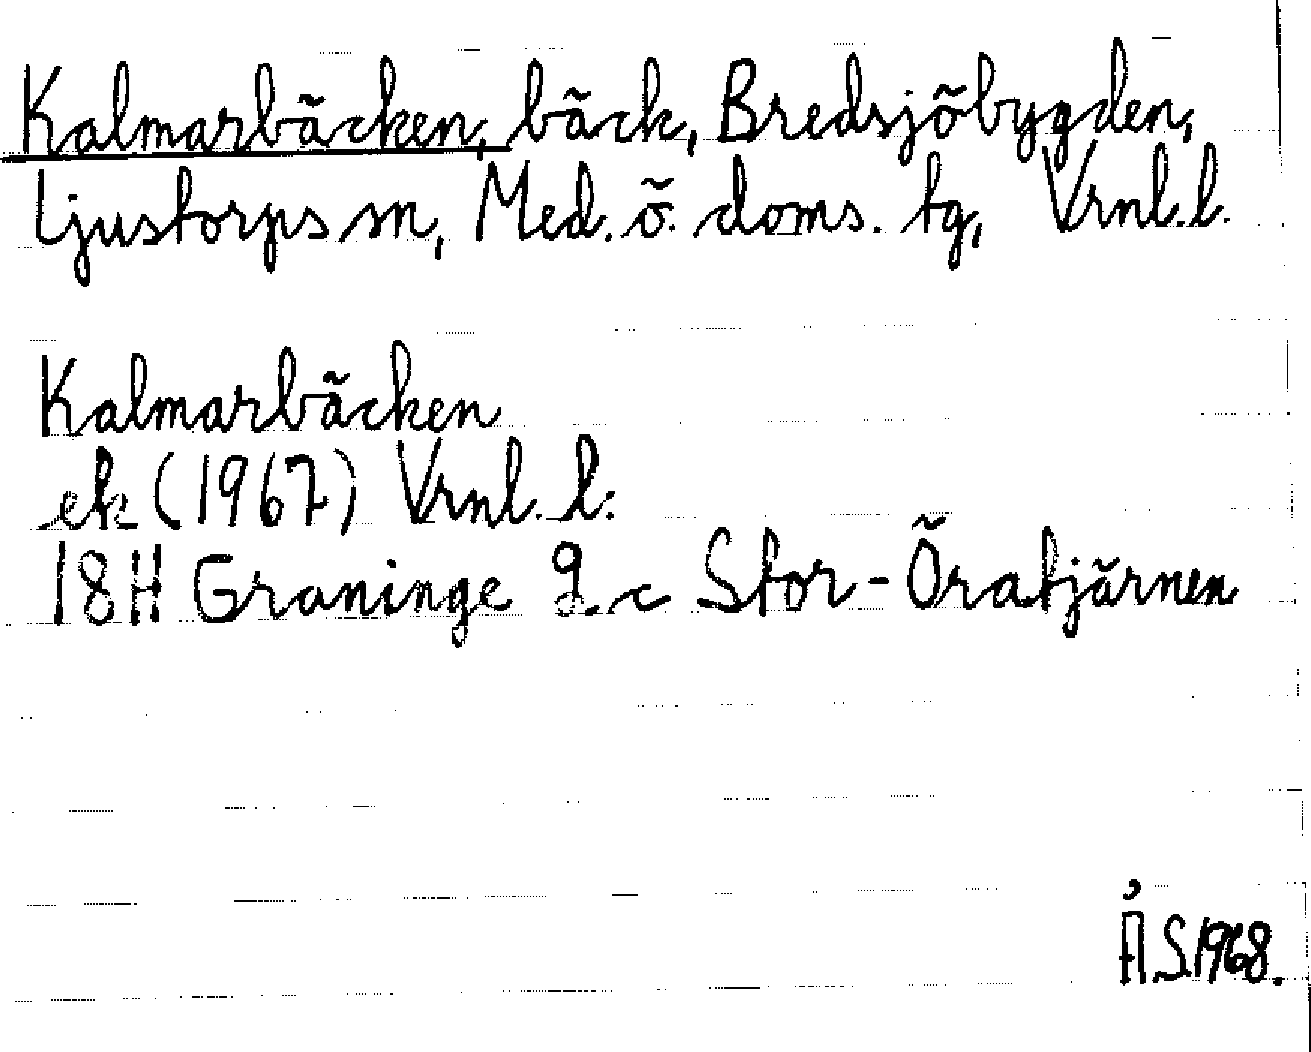 Kalmarbäcken, bäck, Bredsjöbygden,
Ljustorps sn, Med. ö. doms. tg, Vrnl. l.
Kalmarbäcken
ek (1967) Vrnl. l:
18H Graninge 9 c Stor-Öratjärnen
Å.S.1968.